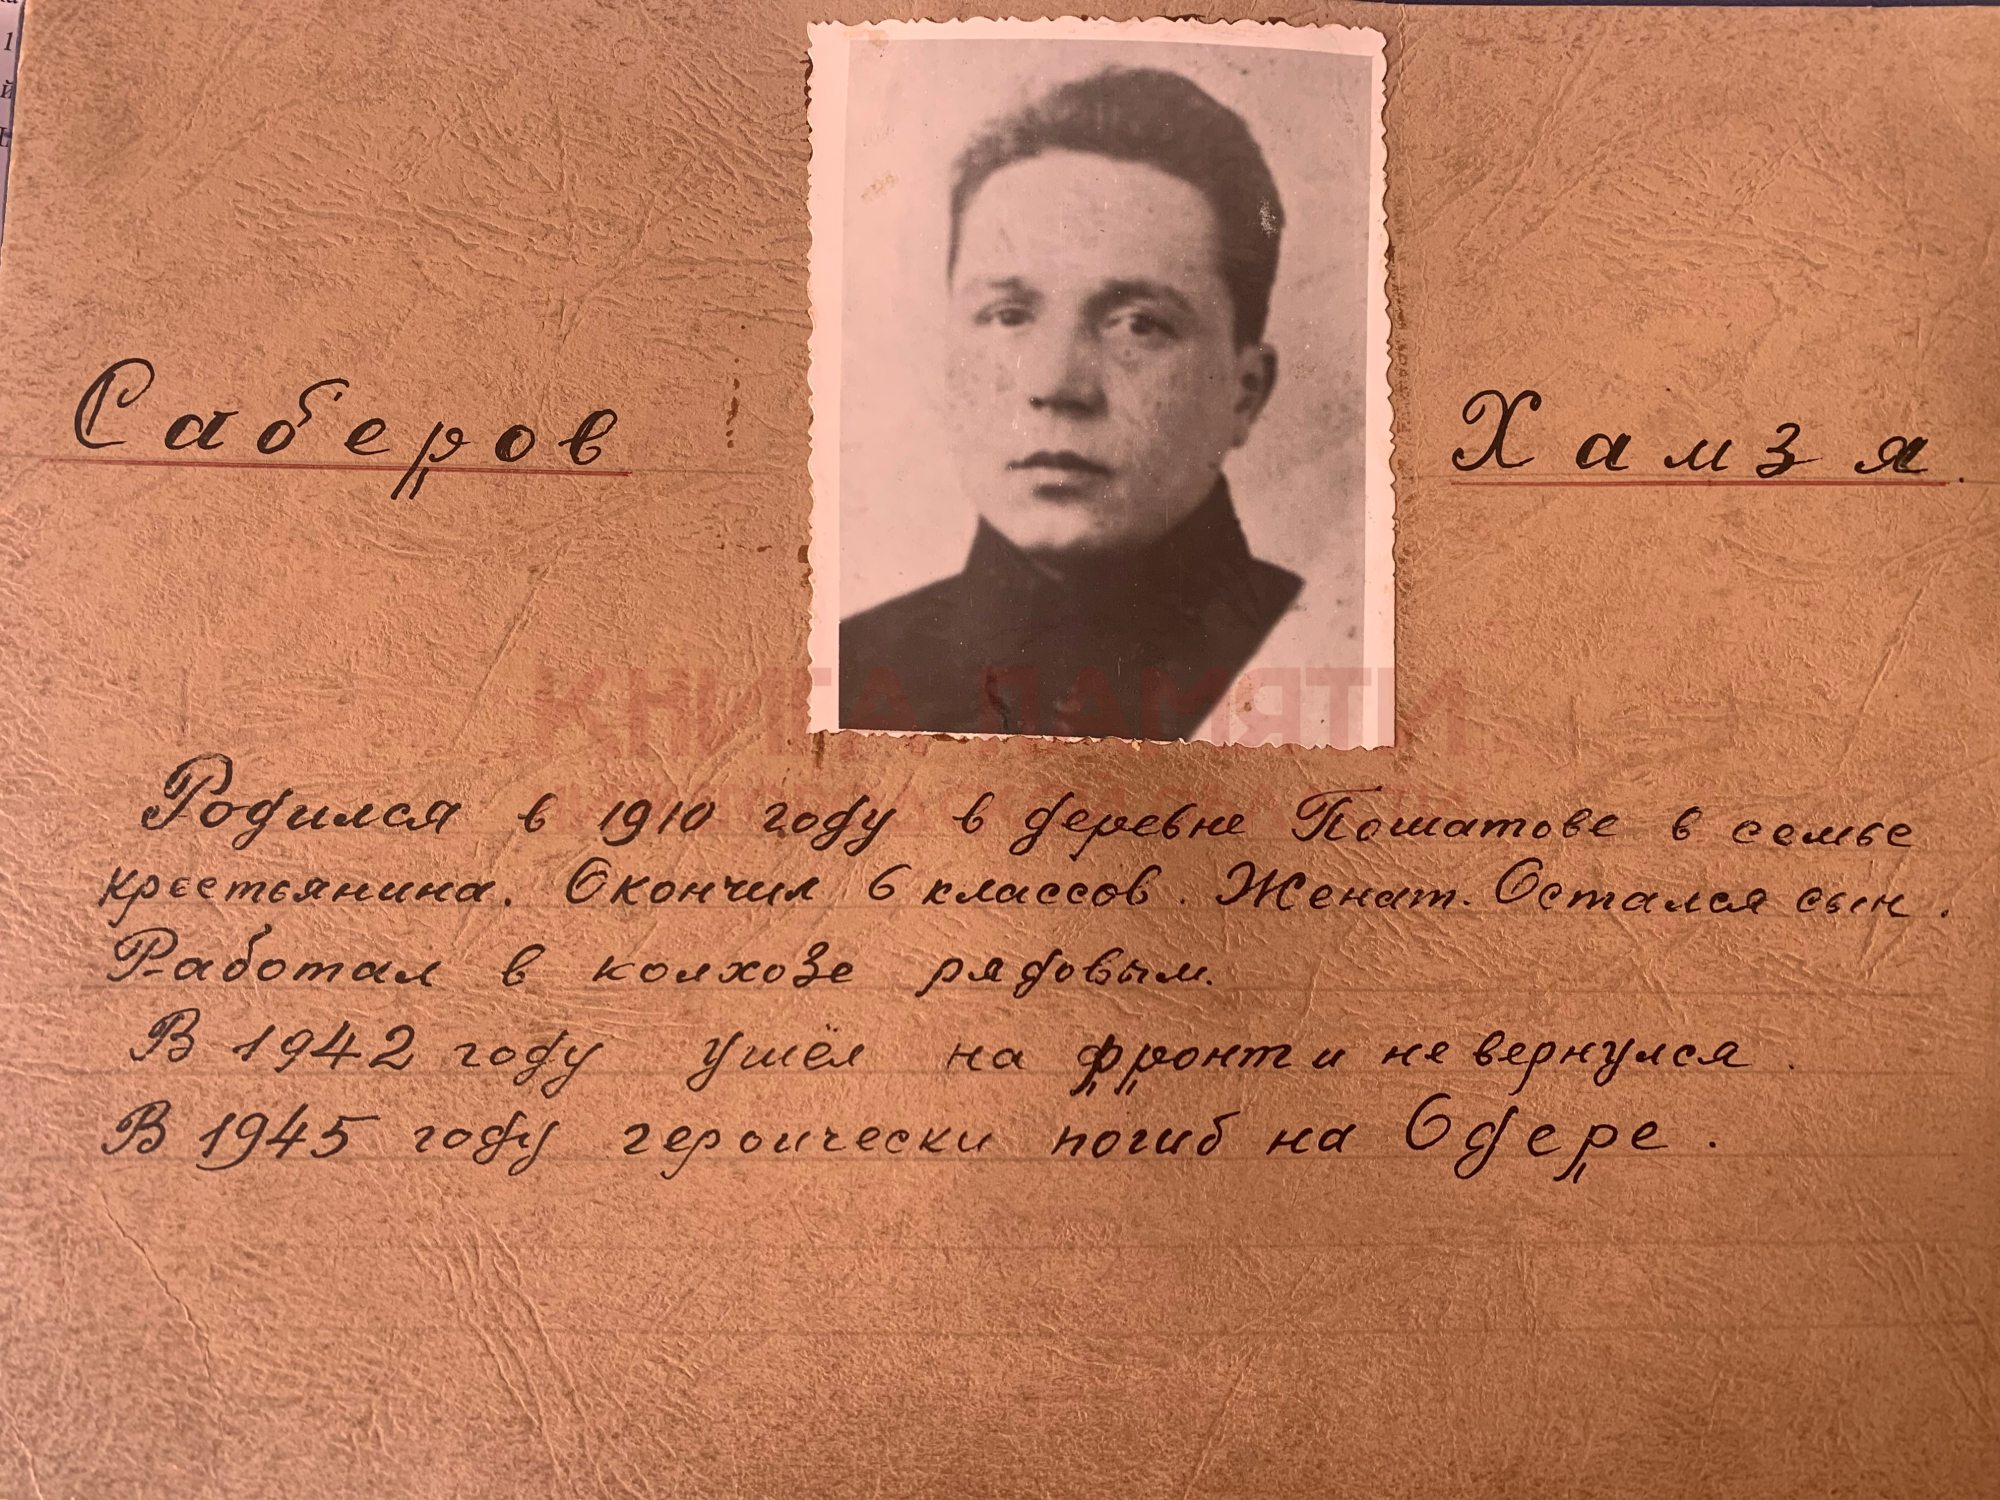 Саберов Хамзя.
КНИГА ПАМЯТИ
Родился в 1910 году в деревне Пошатове в семье
крестьянина. Окончил 6 классов. Женат. Остался сын.
Работал в колхозе рядовым.
В 1942 году ушёл на фронт и не вернулся.
В 1945 году героически погиб на Одере.